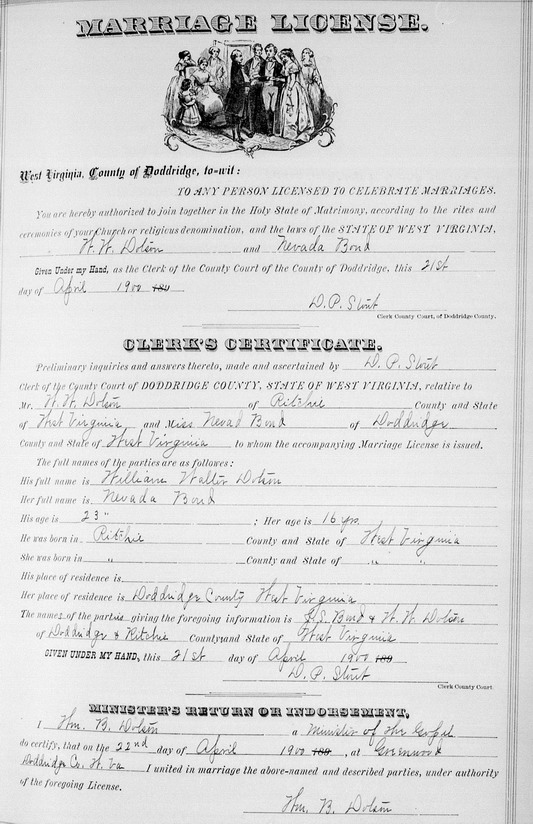 MARRIAGE LICENSE.
West Virginia, County of Doddridge, to-wit:
TO ANY PERSON LICENSED TO CELEBRATE MARRIAGES.
You are hereby authorized to join together in the Holy State of Matrimony, according to the rites and
ceremonies of your Church or religious denomination, and the laws of the STATE OF WEST VIRGINIA,
W. W. Dolson and Nevada Bond
Given Under my Hand, as the Clerk of the County Court of the County of Doddridge, this 21st
day of April 1900 189
D. P. Stout
Clerk County Court, of Doddridge County.
CLERK'S CERTIFICATE.
Preliminary inquiries and answers thereto, made and ascertained by D. P. Stout
Clerk of the County Court of DODDRIDGE COUNTY, STATE OF WEST VIRGINIA, relative to
Mr. W. W. Dolson of Ritchie County and State
of West Virginia and Miss Nevad Bond of Doddridge
County and State of West Virginia to whom the accompanying Marriage License is issued.
The full names of the parties are as follows:
His full name is William Walter Dolson
Her full name is Nevada Bond
His age is 23 " ; Her age is 16 yrs.
He was born in Ritchie County and State of West Virginia
She was born in " County and State of " "
His place of residence is
Her place of residence is Doddridge County West Virginia
The names of the parties giving the foregoing information is S. Bond & W. W. Dolson
of Doddridge & Ritchie County and State of West Virginia
GIVEN UNDER MY HAND, this 21st day of April 1900 189
D. P. Stout
Clerk County Court.
MINISTER'S RETURN OR INDORSEMENT.
I Wm. B. Dolson a Minister of the Gospel
do certify, that on the 22nd day of April 1900 189 , at Greenwood
Doddridge Co. W. Va I united in marriage the above-named and described parties, under authority
of the foregoing License.
Wm. B. Dolson